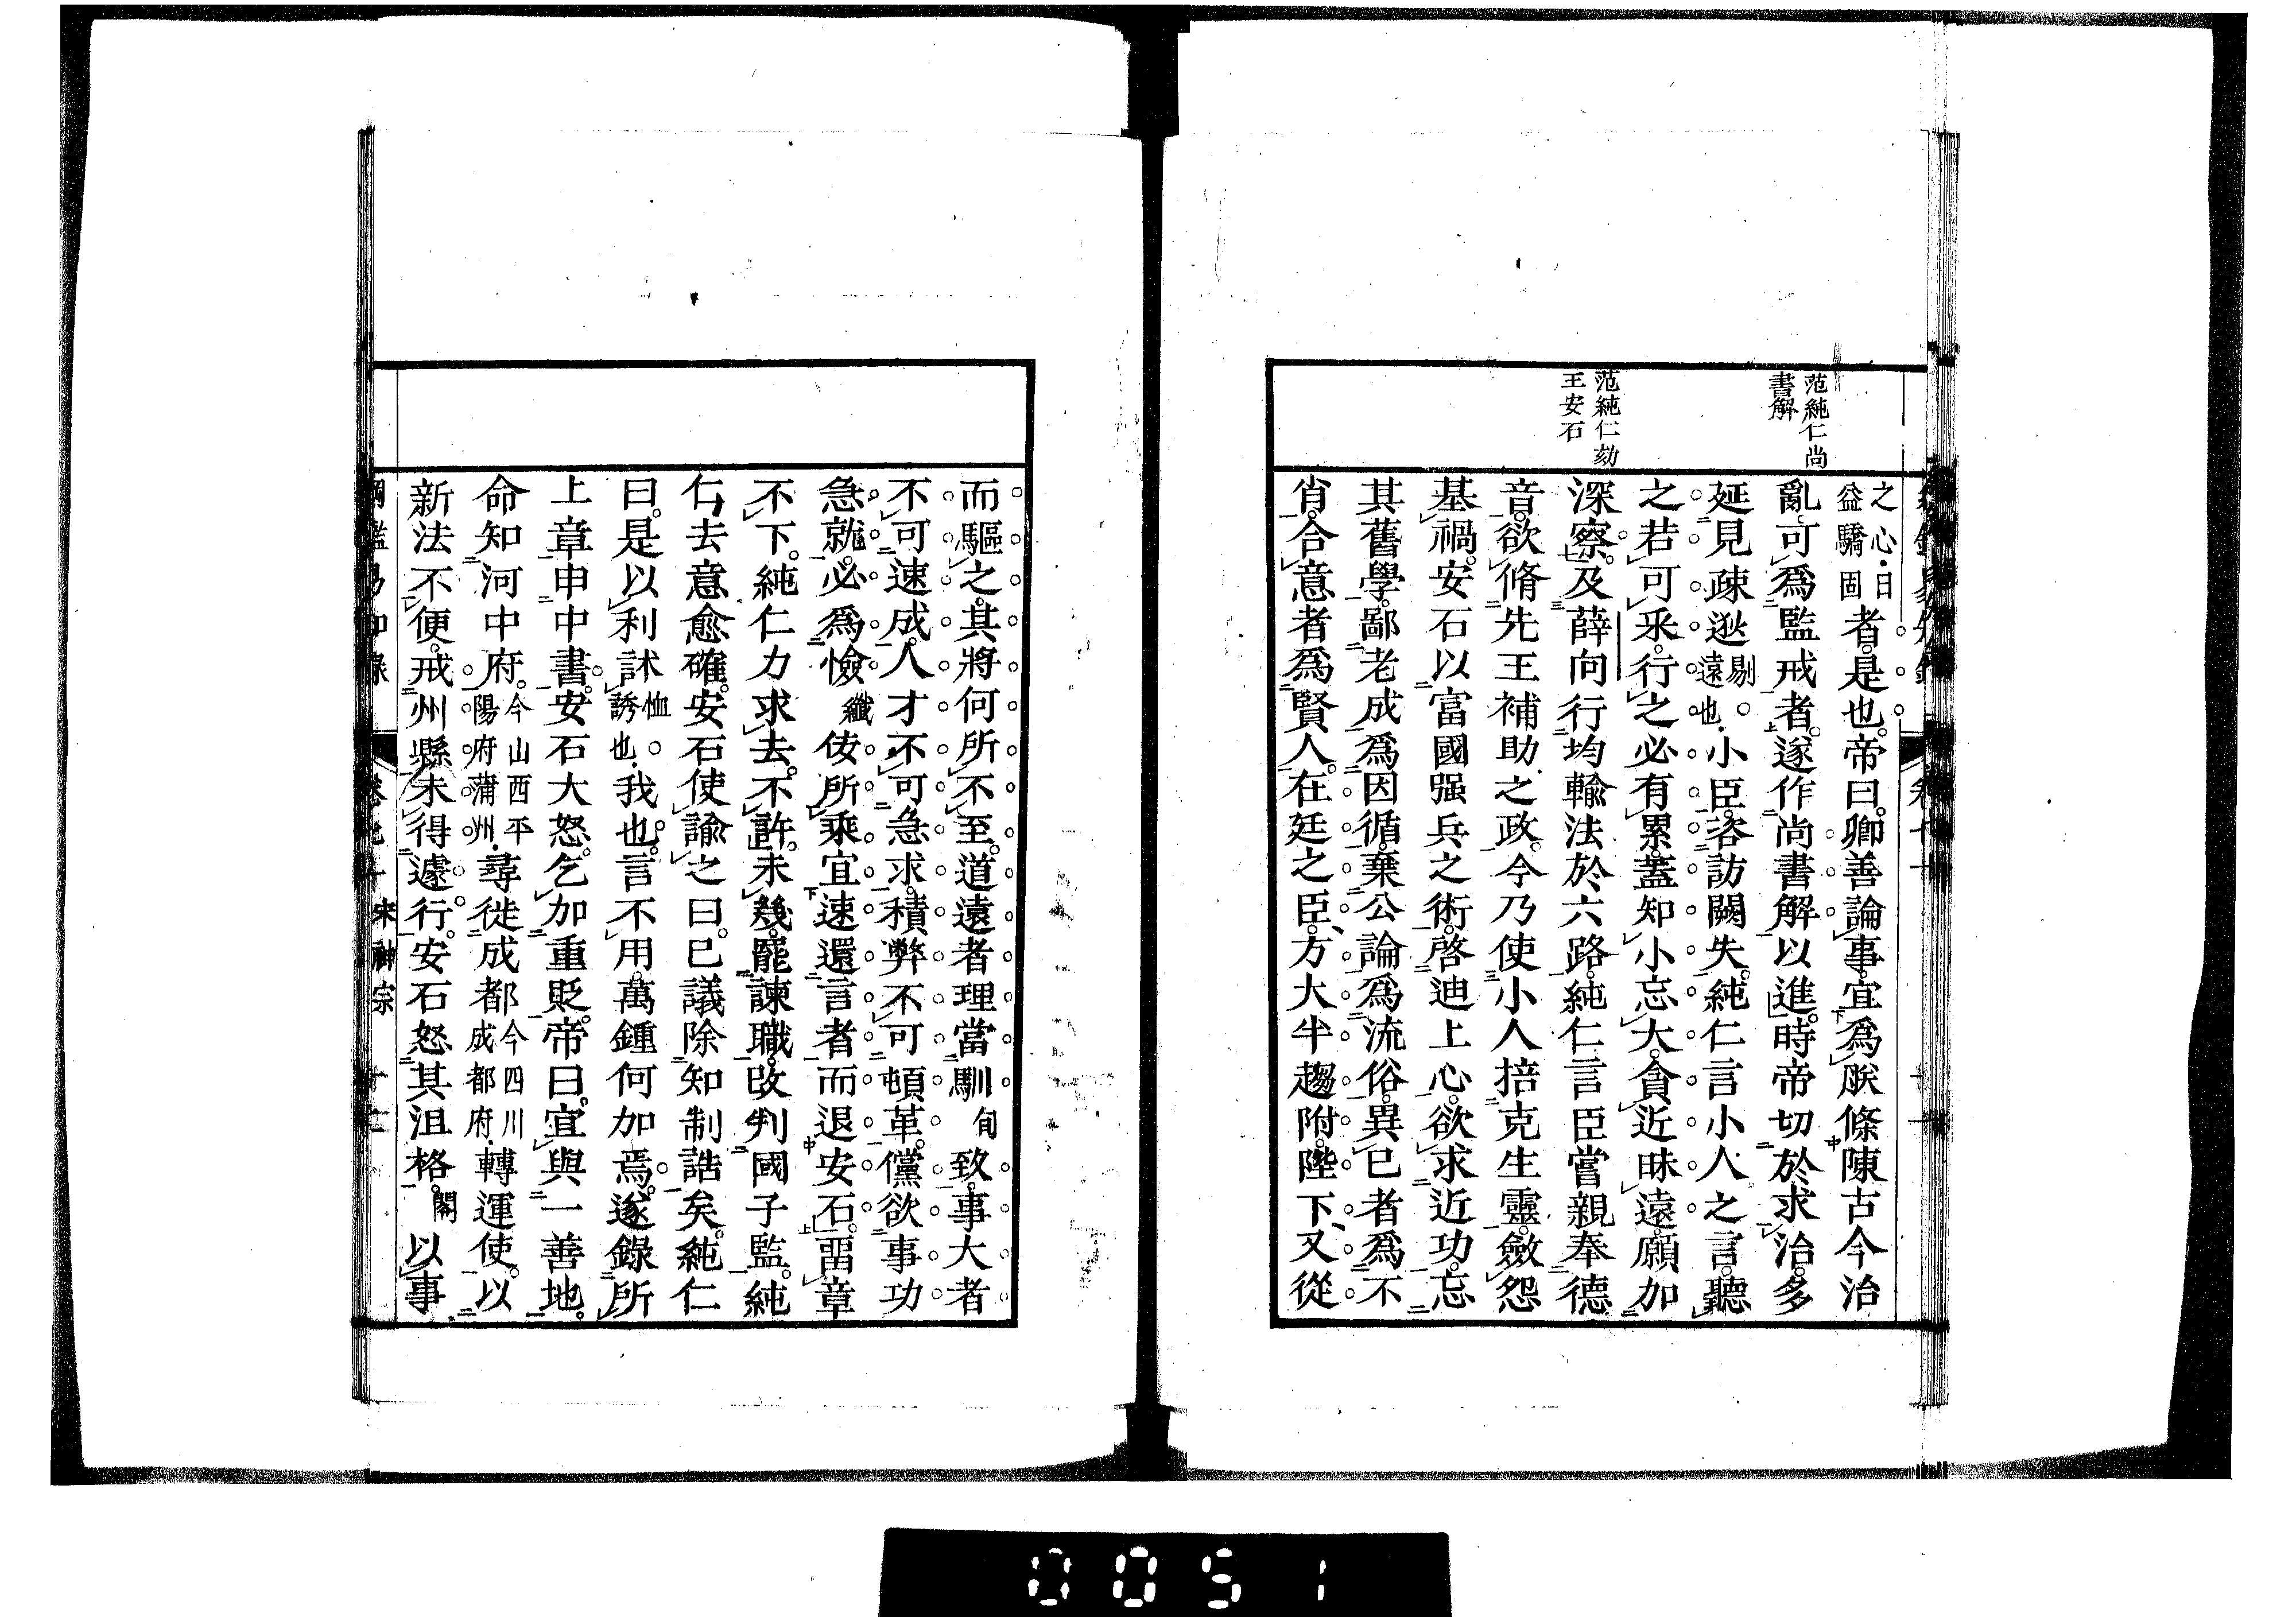 范純仁尚
書解
范純仁劾
王安石
之心日
益驕固
者是也帝曰卿善論事宜爲朕條陳古今治
亂可爲監戒者遂作尚書解以進時帝切於求治多
延見疎逖剔遠也小臣咨訪闕失純仁言小人之言聽
之若可采行之必有累蓋知小忘大貪近昧遠願加
深察及薛向行均輸法於六路純仁言臣嘗親奉德
音欲脩先王補助之政今乃使小人掊克生靈斂怨
基禍安石以富國强兵之術啓迪上心欲求近功忘
其舊學鄙老成爲因循棄公論爲流俗異己者爲不
肖合意者爲賢人在廷之臣方大半趨附陛下又從
而驅之其將何所不至道遠者理當馴旬致事大者
不可速成人才不可急求積弊不可頓革儻欲事功
急就必爲憸纖佞所乘宜速還言者而退安石畱章
不下純仁力求去不許未幾罷諫職改判國子監純
仁去意愈確安石使諭之曰已議除知制誥矣純仁
曰是以利訹恤誘也我也言不用萬鍾何加焉遂錄所
上章申中書安石大怒乞加重貶帝曰宜與一善地
命知河中府今山西平陽府蒲州尋徙成都今四川成都府轉運使以
新法不便戒州縣未得遽行安石怒其沮格閣以事
綱鑑易知錄
宋神宗
0051